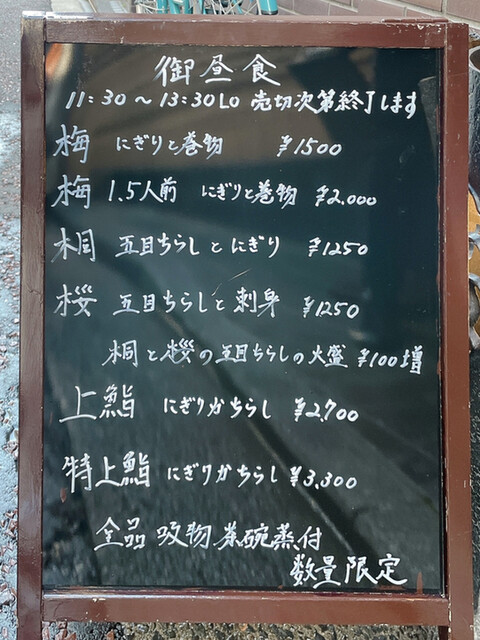 御昼食
11:30～13:30LO 売切次第終了します
梅 にぎりと巻物 ¥1500
梅 1.5人前 にぎりと巻物 ¥2.000
桐 五目ちらしとにぎり ¥1250
桜 五目ちらしと刺身 ¥1250
桐と桜の五目ちらしの大盛 ¥100増
上鮨 にぎりかちらし ¥2,700
特上鮨 にぎりかちらし ¥3,300
全品 吸物 茶碗蒸付
数量限定